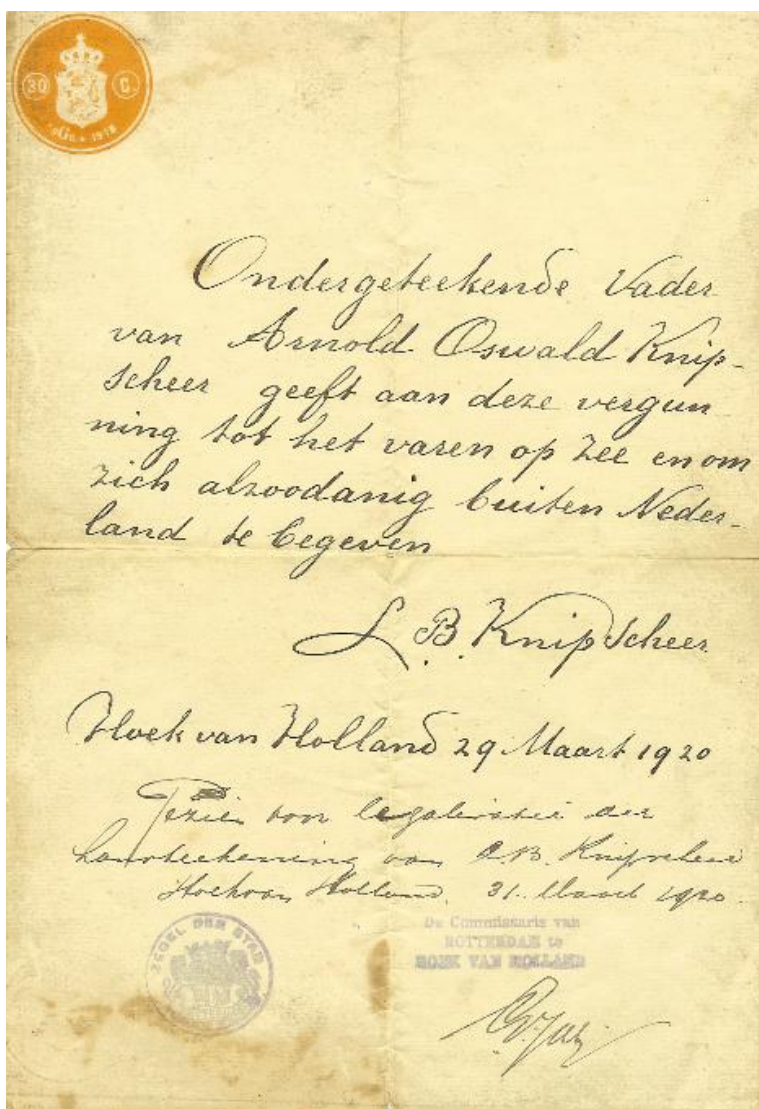 30 C.
1918
Ondergeteekende Vader
van Arnold Oswald Knip-
scheer geeft aan deze vergun
ning tot het varen op zee en om
zich alzoodanig buiten Neder-
land te begeven
L. B. Knipscheer
Hoek van Holland 29 Maart 1920
Gezien voor legalisatie der
handteekening van C.B. Knipscheer
Hoek van Holland. 31. Maart 1920.
ZEGEL DER STAD
De Commissaris van
ROTTERDAM te
HOEK VAN HOLLAND